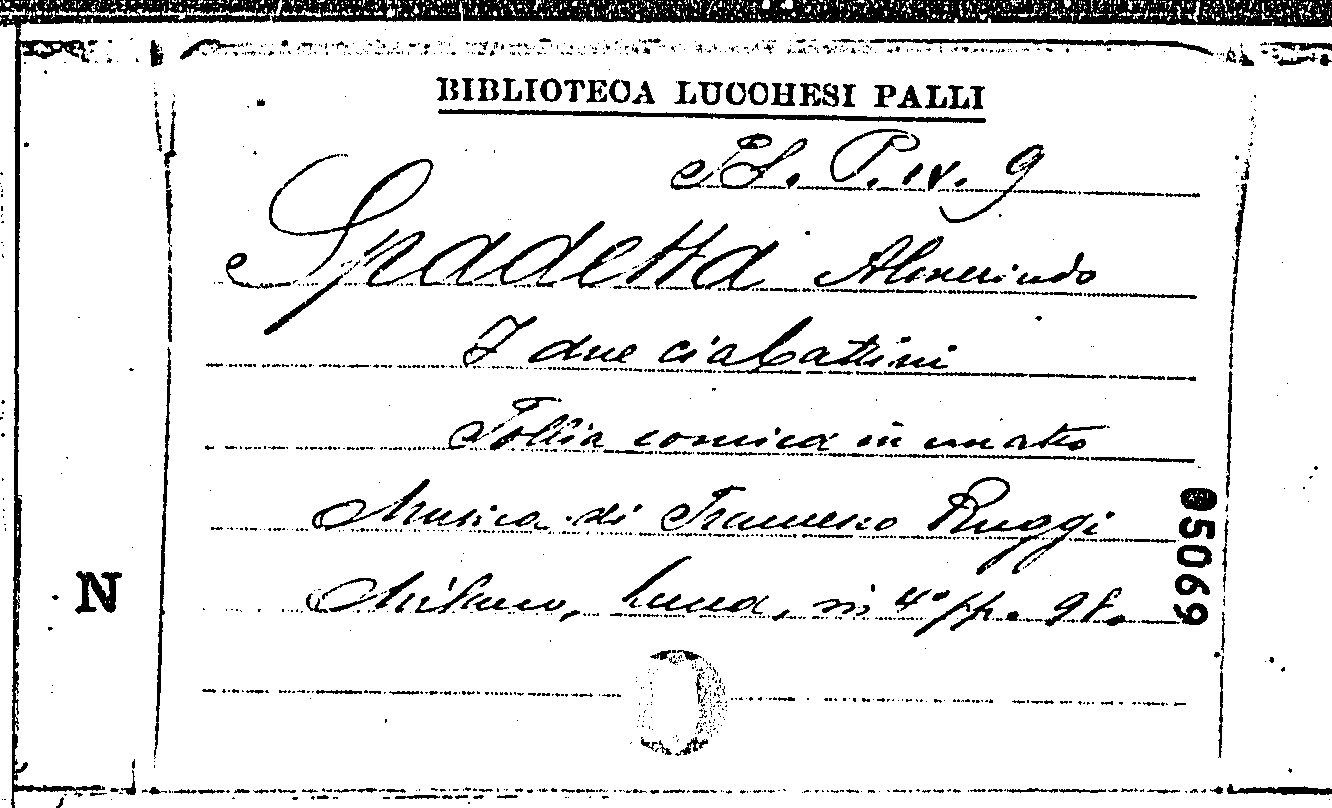 BIBLIOTECA LUCCHESI PALLI
P. IV. 9
Spadetta Almerindo
I due ciabattini
Follia comica in un atto
Musica di Francesco Ruggi
Milano, Lucca, in 4° pp. 98.
05069
N